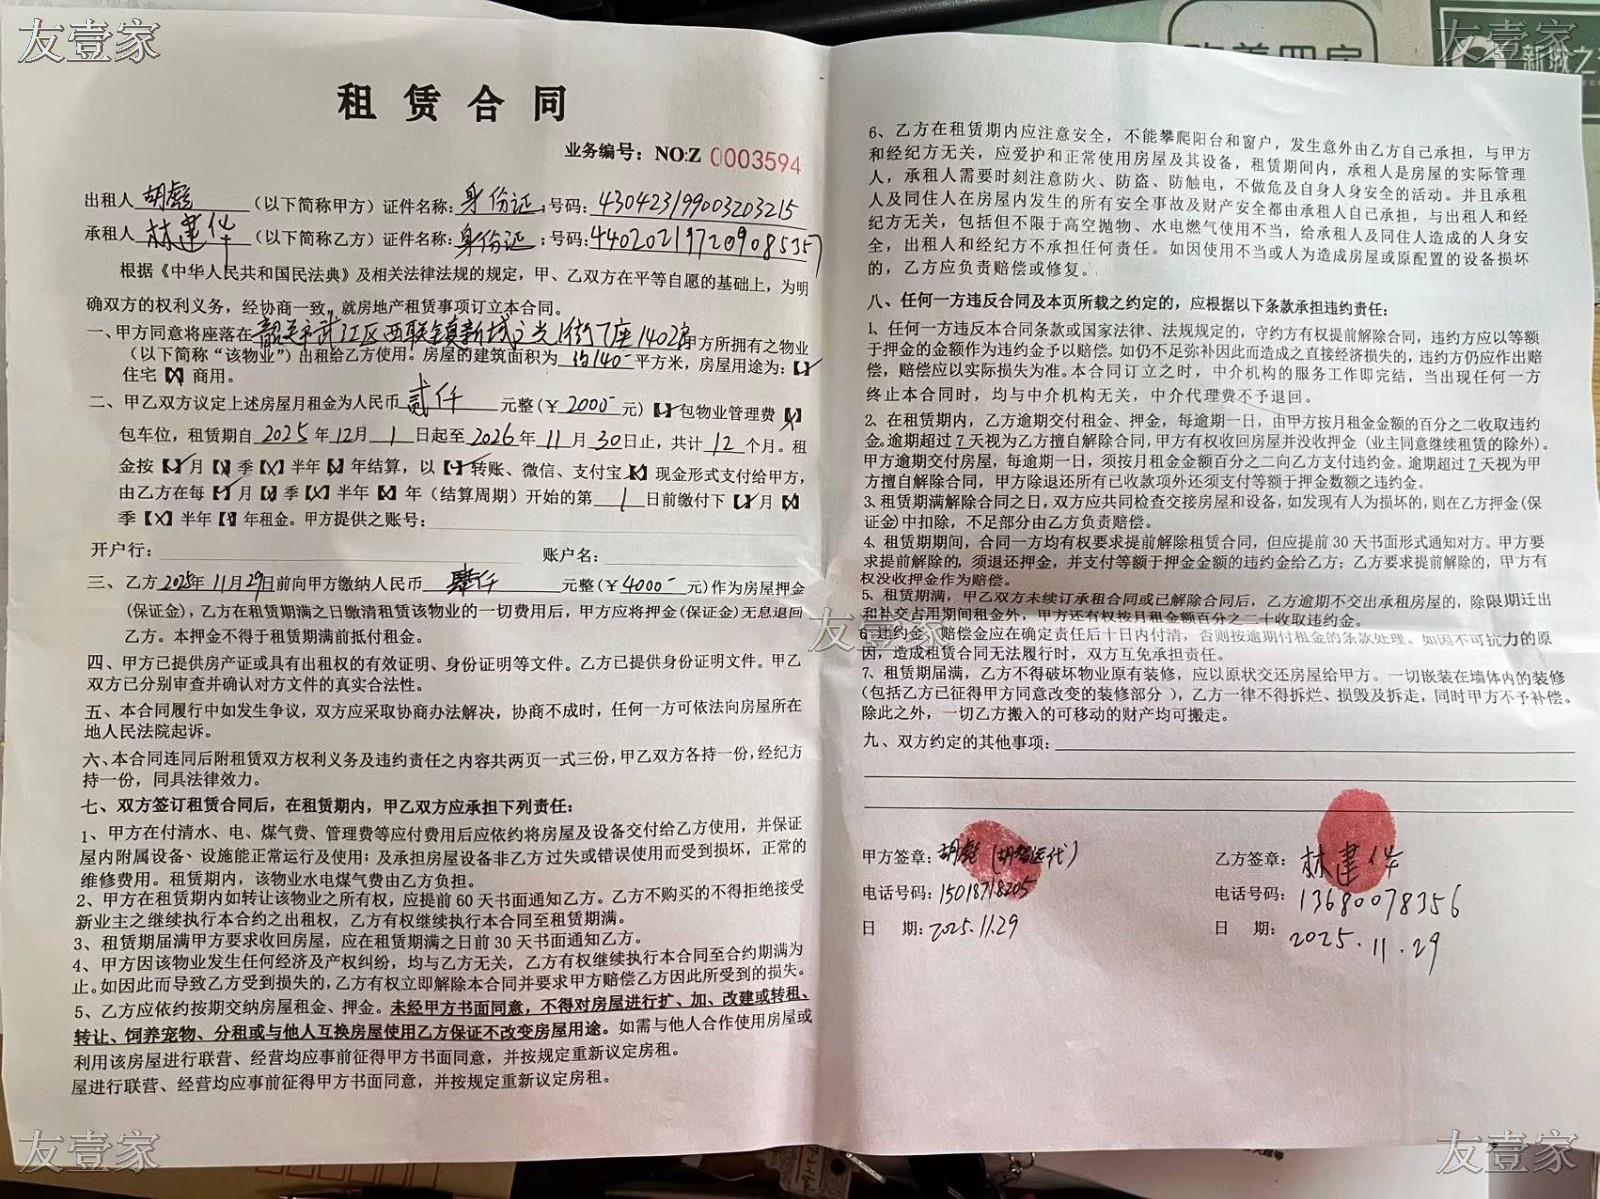 友壹家
友壹家
租赁合同
业务编号：NO:Z 0003594
出租人 胡彪 （以下简称甲方）证件名称：身份证；号码：430423199003203215
承租人 林建华 （以下简称乙方）证件名称：身份证；号码：440202197209085357
根据《中华人民共和国民法典》及相关法律法规的规定，甲、乙双方在平等自愿的基础上，为明
确双方的权利义务，经协商一致，就房地产租赁事项订立本合同。
一、甲方同意将座落在韶关市武江区西联镇新城之光1街7座1402房甲方所拥有之物业
（以下简称“该物业”）出租给乙方使用。房屋的建筑面积为 约140 平方米，房屋用途为：【✓】
住宅【X】商用。
二、甲乙双方议定上述房屋月租金为人民币 贰仟 元整（￥ 2000 元）【✓】包物业管理费【X】
包车位，租赁期自 2025 年 12 月 1 日起至 2026 年 11 月 30 日止，共计 12 个月。租
金按【✓】月【X】季【X】半年【X】年结算，以【✓】转账、微信、支付宝【X】现金形式支付给甲方，
由乙方在每【✓】月【X】季【X】半年【X】年（结算周期）开始的第 1 日前缴付下【✓】月【X】
季【X】半年【X】年租金。甲方提供之账号：
开户行： 账户名：
三、乙方 2025年11月29日前向甲方缴纳人民币 肆仟 元整（￥4000 元）作为房屋押金
（保证金），乙方在租赁期满之日缴清租赁该物业的一切费用后，甲方应将押金(保证金)无息退回
乙方。本押金不得于租赁期满前抵付租金。
四、甲方已提供房产证或具有出租权的有效证明、身份证明等文件。乙方已提供身份证明文件。甲乙
双方已分别审查并确认对方文件的真实合法性。
五、本合同履行中如发生争议，双方应采取协商办法解决，协商不成时，任何一方可依法向房屋所在
地人民法院起诉。
六、本合同连同后附租赁双方权利义务及违约责任之内容共两页一式三份，甲乙双方各持一份，经纪方
持一份，同具法律效力。
七、双方签订租赁合同后，在租赁期内，甲乙双方应承担下列责任：
1、甲方在付清水、电、煤气费、管理费等应付费用后应依约将房屋及设备交付给乙方使用，并保证
屋内附属设备、设施能正常运行及使用；及承担房屋设备非乙方过失或错误使用而受到损坏，正常的
维修费用。租赁期内，该物业水电煤气费由乙方负担。
2、甲方在租赁期内如转让该物业之所有权，应提前60天书面通知乙方。乙方不购买的不得拒绝接受
新业主之继续执行本合约之出租权，乙方有权继续执行本合同至租赁期满。
3、租赁期届满甲方要求收回房屋，应在租赁期满之日前30天书面通知乙方。
4、甲方因该物业发生任何经济及产权纠纷，均与乙方无关，乙方有权继续执行本合同至合约期满为
止。如因此而导致乙方受到损失的，乙方有权立即解除本合同并要求甲方赔偿乙方因此所受到的损失。
5、乙方应依约按期交纳房屋租金、押金。未经甲方书面同意，不得对房屋进行扩、加、改建或转租、
转让、饲养宠物、分租或与他人互换房屋使用乙方保证不改变房屋用途。如需与他人合作使用房屋或
利用该房屋进行联营、经营均应事前征得甲方书面同意，并按规定重新议定房租。
屋进行联营、经营均应事前征得甲方书面同意，并按规定重新议定房租。
6、乙方在租赁期内应注意安全，不能攀爬阳台和窗户，发生意外由乙方自己承担，与甲方
和经纪方无关，应爱护和正常使用房屋及其设备，租赁期间内，承租人是房屋的实际管理
人，承租人需要时刻注意防火、防盗、防触电，不做危及自身人身安全的活动。并且承租
人及同住人在房屋内发生的所有安全事故及财产安全都由承租人自己承担，与出租人和经
纪方无关，包括但不限于高空抛物、水电燃气使用不当，给承租人及同住人造成的人身安
全，出租人和经纪方不承担任何责任。如因使用不当或人为造成房屋或原配置的设备损坏
的，乙方应负责赔偿或修复。
八、任何一方违反合同及本页所载之约定的，应根据以下条款承担违约责任：
1、任何一方违反本合同条款或国家法律、法规规定的，守约方有权提前解除合同，违约方应以等额
于押金的金额作为违约金予以赔偿。如仍不足弥补因此而造成之直接经济损失的，违约方仍应作出赔
偿，赔偿应以实际损失为准。本合同订立之时，中介机构的服务工作即完结，当出现任何一方
终止本合同时，均与中介机构无关，中介代理费不予退回。
2、在租赁期内，乙方逾期交付租金、押金，每逾期一日，由甲方按月租金金额的百分之二收取违约
金。逾期超过7天视为乙方擅自解除合同，甲方有权收回房屋并没收押金（业主同意继续租赁的除外）。
甲方逾期交付房屋，每逾期一日，须按月租金金额百分之二向乙方支付违约金。逾期超过7天视为甲
方擅自解除合同，甲方除退还所有已收款项外还须支付等额于押金数额之违约金。
3、租赁期满解除合同之日，双方应共同检查交接房屋和设备，如发现有人为损坏的，则在乙方押金(保
证金)中扣除，不足部分由乙方负责赔偿。
4、租赁期期间，合同一方均有权要求提前解除租赁合同，但应提前30天书面形式通知对方。甲方要
求提前解除的，须退还押金，并支付等额于押金金额的违约金给乙方；乙方要求提前解除的，甲方有
权没收押金作为赔偿。
5、租赁期满，甲乙双方未续订承租合同或已解除合同后，乙方逾期不交出承租房屋的，除限期迁出
和补交占用期间租金外，甲方还有权按月租金额百分之二十收取违约金。
友壹家
6、违约金、赔偿金应在确定责任后十日内付清，否则按逾期付租金的条款处理。如因不可抗力的原
因，造成租赁合同无法履行时，双方互免承担责任。
7、租赁期届满，乙方不得破坏物业原有装修，应以原状交还房屋给甲方。一切嵌装在墙体内的装修
（包括乙方已征得甲方同意改变的装修部分），乙方一律不得拆烂、损毁及拆走，同时甲方不予补偿。
除此之外，一切乙方搬入的可移动的财产均可搬走。
九、双方约定的其他事项：
甲方签章：胡彪
乙方签章：林建华
电话号码：15018718205
电话号码：13680078356
日 期：2025.11.29
日 期：2025.11.29
友壹家
友壹家